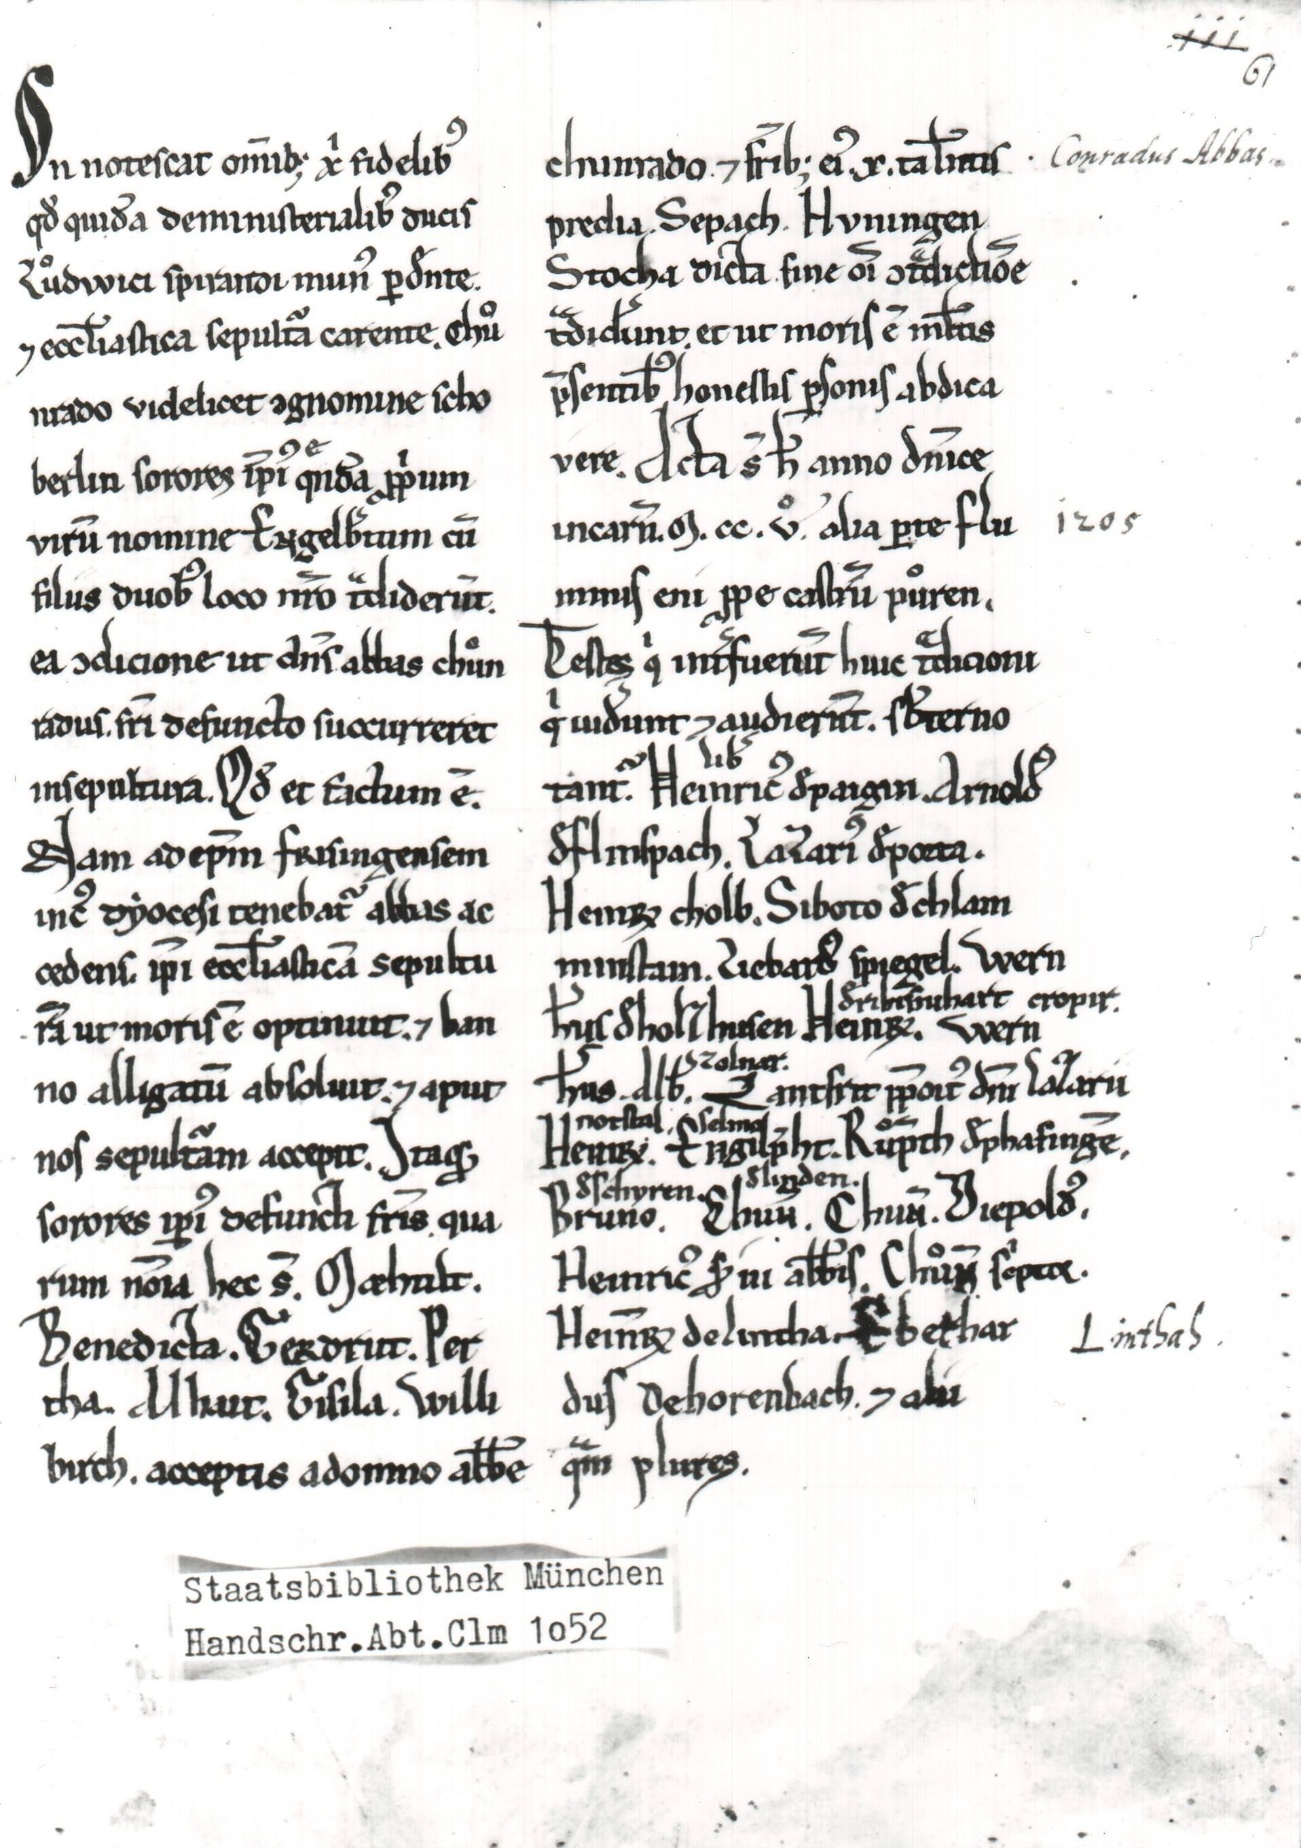 iii
61
In notescat om̄ib; xͥ fidelibꝰ
qđ quida deministerialibꝰ ducis
Lůdwici spiranti munꝰ ꝑdn̄te.
⁊ eccl̄iastica sepultᵃ carente. Chů
nrado videlicet ꝯgnomine scho
berlin sorores ip̄iꝰ quēda ꝓpͥum
virū nomine Engelb̄tum cū
filiis duobꝰ loco nr̄o tᵃdiderūt.
ea ꝯdicione ut dn̄s abbas chůn
radus. fr̄i defuncto succurreret
insepultura. Qđ et factum ē.
Nam ad ep̄m frisingensem
incꝰ dyocesi tenebat᷑ abbas ac
cedens. ip̄i eccl̄iasticā sepultu
rā ut moris ē optinuit. ⁊ ban
no alligatū absoluit. ⁊ aput
nos sepultᵃm accepit. Itaq;
sorores ip̄iꝰ defuncti fr̄is qua
rum nōia hec s̄. Mæhtilt.
Benedicta. Gerdrut. Per
tha. Alhait. Gisila. Willi
birch. acceptis adomno abb̄e
chunrado. ⁊ fr̄ib; eiꝰ. x. tal̄ntis
predia. Sepach. Hvningen
Stocha dicta sine oī ꝯtᵃdictiōe
tᵃdider̄unt. et ut moris ē ml̄tis
p̄sentibꝰ honestis ꝑsonis abdica
vere. Acta s̄ h̄ anno dn̄ice
incarn̄. M. cc. v̊. alia ꝑte flu
minis eni ꝓpe castrū půren.
Testes qͥ int̄fuerūt huic tᵃdicioni
qͥ uid̄unt ⁊ audierūt. sb̄terno
tant᷑. Heinricꝰ lib̄ đpaigin. Arnolđ
đflinspach. Lazariꝰ đporta.
Heinr̄ cholb. Siboto đchlam
minstain. Liebardꝰ spiegel. Wern
h̄us đholzhusen Heinr̄. đribisinhart Wern cropir.
h̄us. alb̄. zolnar. Lantfrit p̄poitꝰ dn̄i Lazarii
Heinr̄. notstal. Engilp̄ht. selmo Růp̄th đphafingē.
Bruno. đschyren. Chun̄. đlinden. Chun̄. Diepoldꝰ.
Heinricꝰ ẜui abb̄is. Chůn̄ scͥptor.
Heinr̄ delintha. Eberhar
dus dehorenbach. ⁊ alii
qᵃm plures.
Conradus Abbas.
1205
Linthah.
Staatsbibliothek München
Handschr.Abt.Clm 1o52